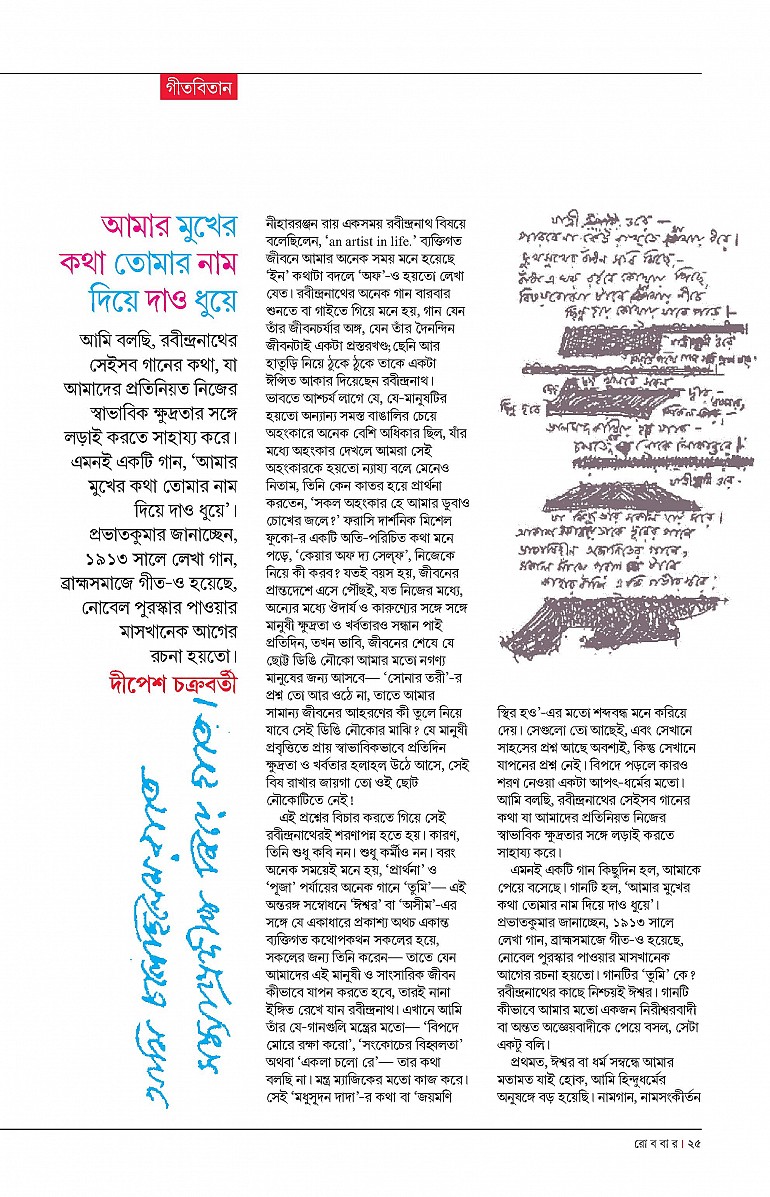 গীতবিতান
আমার মুখের
কথা তোমার নাম
দিয়ে দাও ধুয়ে
আমি বলছি, রবীন্দ্রনাথের
সেইসব গানের কথা, যা
আমাদের প্রতিনিয়ত নিজের
স্বাভাবিক ক্ষুদ্রতার সঙ্গে
লড়াই করতে সাহায্য করে।
এমনই একটি গান, ‘আমার
মুখের কথা তোমার নাম
দিয়ে দাও ধুয়ে’।
প্রভাতকুমার জানাচ্ছেন,
১৯১৩ সালে লেখা গান,
ব্রাহ্মসমাজে গীত-ও হয়েছে,
নোবেল পুরস্কার পাওয়ার
মাসখানেক আগের
রচনা হয়তো।
দীপেশ চক্রবর্তী
নীহাররঞ্জন রায় একসময় রবীন্দ্রনাথ বিষয়ে
বলেছিলেন, ‘an artist in life.’ ব্যক্তিগত
জীবনে আমার অনেক সময় মনে হয়েছে
‘ইন’ কথাটা বদলে ‘অফ’-ও হয়তো লেখা
যেত। রবীন্দ্রনাথের অনেক গান বারবার
শুনতে বা গাইতে গিয়ে মনে হয়, গান যেন
তাঁর জীবনচর্যার অঙ্গ, যেন তাঁর দৈনন্দিন
জীবনটাই একটা প্রস্তরখণ্ড; ছেনি আর
হাতুড়ি নিয়ে ঠুকে ঠুকে তাকে একটা
ঈপ্সিত আকার দিয়েছেন রবীন্দ্রনাথ।
ভাবতে আশ্চর্য লাগে যে, যে-মানুষটির
হয়তো অন্যান্য সমস্ত বাঙালির চেয়ে
অহংকারে অনেক বেশি অধিকার ছিল, যাঁর
মধ্যে অহংকার দেখলে আমরা সেই
অহংকারকে হয়তো ন্যায্য বলে মেনেও
নিতাম, তিনি কেন কাতর হয়ে প্রার্থনা
করতেন, ‘সকল অহংকার হে আমার ডুবাও
চোখের জলে?’ ফরাসি দার্শনিক মিশেল
ফুকো-র একটি অতি-পরিচিত কথা মনে
পড়ে, ‘কেয়ার অফ দ্য সেল্‌ফ’, নিজেকে
নিয়ে কী করব? যতই বয়স হয়, জীবনের
প্রান্তদেশে এসে পৌঁছই, যত নিজের মধ্যে,
অন্যের মধ্যে ঔদার্য ও কারুণ্যের সঙ্গে সঙ্গে
মানুষী ক্ষুদ্রতা ও খর্বতারও সন্ধান পাই
প্রতিদিন, তখন ভাবি, জীবনের শেষে যে
ছোট্ট ডিঙি নৌকো আমার মতো নগণ্য
মানুষের জন্য আসবে— ‘সোনার তরী’-র
প্রশ্ন তো আর ওঠে না, তাতে আমার
সামান্য জীবনের আহরণের কী তুলে নিয়ে
যাবে সেই ডিঙি নৌকোর মাঝি? যে মানুষী
প্রবৃত্তিতে প্রায় স্বাভাবিকভাবে প্রতিদিন
ক্ষুদ্রতা ও খর্বতার হলাহল উঠে আসে, সেই
বিষ রাখার জায়গা তো ওই ছোট
নৌকোটিতে নেই!
এই প্রশ্নের বিচার করতে গিয়ে সেই
রবীন্দ্রনাথেরই শরণাপন্ন হতে হয়। কারণ,
তিনি শুধু কবি নন। শুধু কর্মীও নন। বরং
অনেক সময়েই মনে হয়, ‘প্রার্থনা’ ও
‘পূজা’ পর্যায়ের অনেক গানে ‘তুমি’— এই
অন্তরঙ্গ সম্বোধনে ‘ঈশ্বর’ বা ‘অসীম’-এর
সঙ্গে যে একাধারে প্রকাশ্য অথচ একান্ত
ব্যক্তিগত কথোপকথন সকলের হয়ে,
সকলের জন্য তিনি করেন— তাতে যেন
আমাদের এই মানুষী ও সাংসারিক জীবন
কীভাবে যাপন করতে হবে, তারই নানা
ইঙ্গিত রেখে যান রবীন্দ্রনাথ। এখানে আমি
তাঁর যে-গানগুলি মন্ত্রের মতো— ‘বিপদে
মোরে রক্ষা করো’, ‘সংকোচের বিহ্বলতা’
অথবা ‘একলা চলো রে’— তার কথা
বলছি না। মন্ত্র ম্যাজিকের মতো কাজ করে।
সেই ‘মধুসূদন দাদা’-র কথা বা ‘জয়মণি
স্থির হও’-এর মতো শব্দবন্ধ মনে করিয়ে
দেয়। সেগুলো তো আছেই, এবং সেখানে
সাহসের প্রশ্ন আছে অবশ্যই, কিন্তু সেখানে
যাপনের প্রশ্ন নেই। বিপদে পড়লে কারও
শরণ নেওয়া একটা আপৎ-ধর্মের মতো।
আমি বলছি, রবীন্দ্রনাথের সেইসব গানের
কথা যা আমাদের প্রতিনিয়ত নিজের
স্বাভাবিক ক্ষুদ্রতার সঙ্গে লড়াই করতে
সাহায্য করে।
এমনই একটি গান কিছুদিন হল, আমাকে
পেয়ে বসেছে। গানটি হল, ‘আমার মুখের
কথা তোমার নাম দিয়ে দাও ধুয়ে’।
প্রভাতকুমার জানাচ্ছেন, ১৯১৩ সালে
লেখা গান, ব্রাহ্মসমাজে গীত-ও হয়েছে,
নোবেল পুরস্কার পাওয়ার মাসখানেক
আগের রচনা হয়তো। গানটির ‘তুমি’ কে?
রবীন্দ্রনাথের কাছে নিশ্চয়ই ঈশ্বর। গানটি
কীভাবে আমার মতো একজন নিরীশ্বরবাদী
বা অন্তত অজ্ঞেয়বাদীকে পেয়ে বসল, সেটা
একটু বলি।
প্রথমত, ঈশ্বর বা ধর্ম সম্বন্ধে আমার
মতামত যাই হোক, আমি হিন্দুধর্মের
অনুষঙ্গে বড় হয়েছি। নামগান, নামসংকীর্তন
রোববার। ২৫